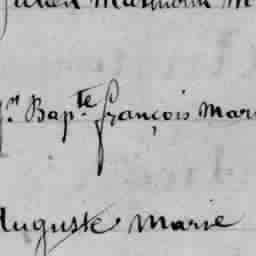 Jn Bapte françois Mar
Auguste Marie